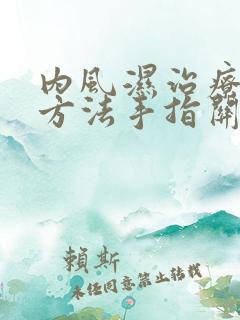 内風濕治療
方法手指關
賴斯
未经同意禁止转载